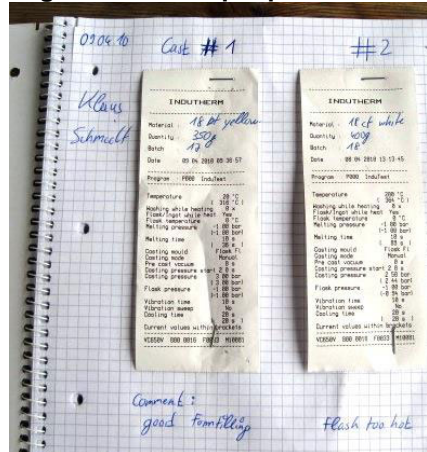 09.04.10
Cast # 1
# 2
Klaus
Schmidt
INDUTHERM
Material : 18 ct yellow
Quantity : 350g
Batch 17
Date 09 04 2010 09 38 57
Program P000 InduTest
Temperature
Washing while heating 0 x
Flask/Ingot while heat Yes
Flask temperature 0 °C
Melting pressure -1 00 bar
Melting time 10 s
Casting mould Flask Fl
Casting mode Manual
Pre cast vacuum 0 s
Casting pressure start 2 0 s
Casting pressure 3 00 bar
( 3 00 bar)
Flask pressure -1 00 bar
Vibration time 10 s
Vibration sweep No
Cooling time 20 s
Current values within brackets
INDUTHERM
Material : 18 ct white
Quantity : 400g
Batch 18
Program P000 InduTest
Temperature 200 °C
Washing while heating 0 x
Flask/Ingot while heat Yes
Flask temperature 0 °C
Melting pressure -1 00 bar
Melting time 10 s
Casting mould Flask Fl
Casting mode Manual
Pre cast vacuum 0 s
Casting pressure start 2 0 s
Casting pressure 2 50 bar
Flask pressure -1 00 bar
Vibration time 10 s
Vibration sweep No
Cooling time 20 s
Current values within brackets
Comment :
good Formfilling
flash too hot